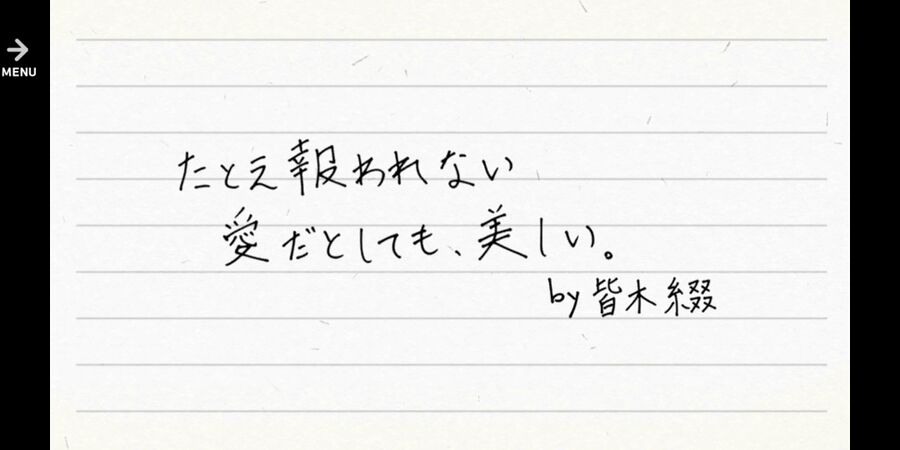 MENU
たとえ報われない
愛だとしても、美しい。
by 皆木 綴